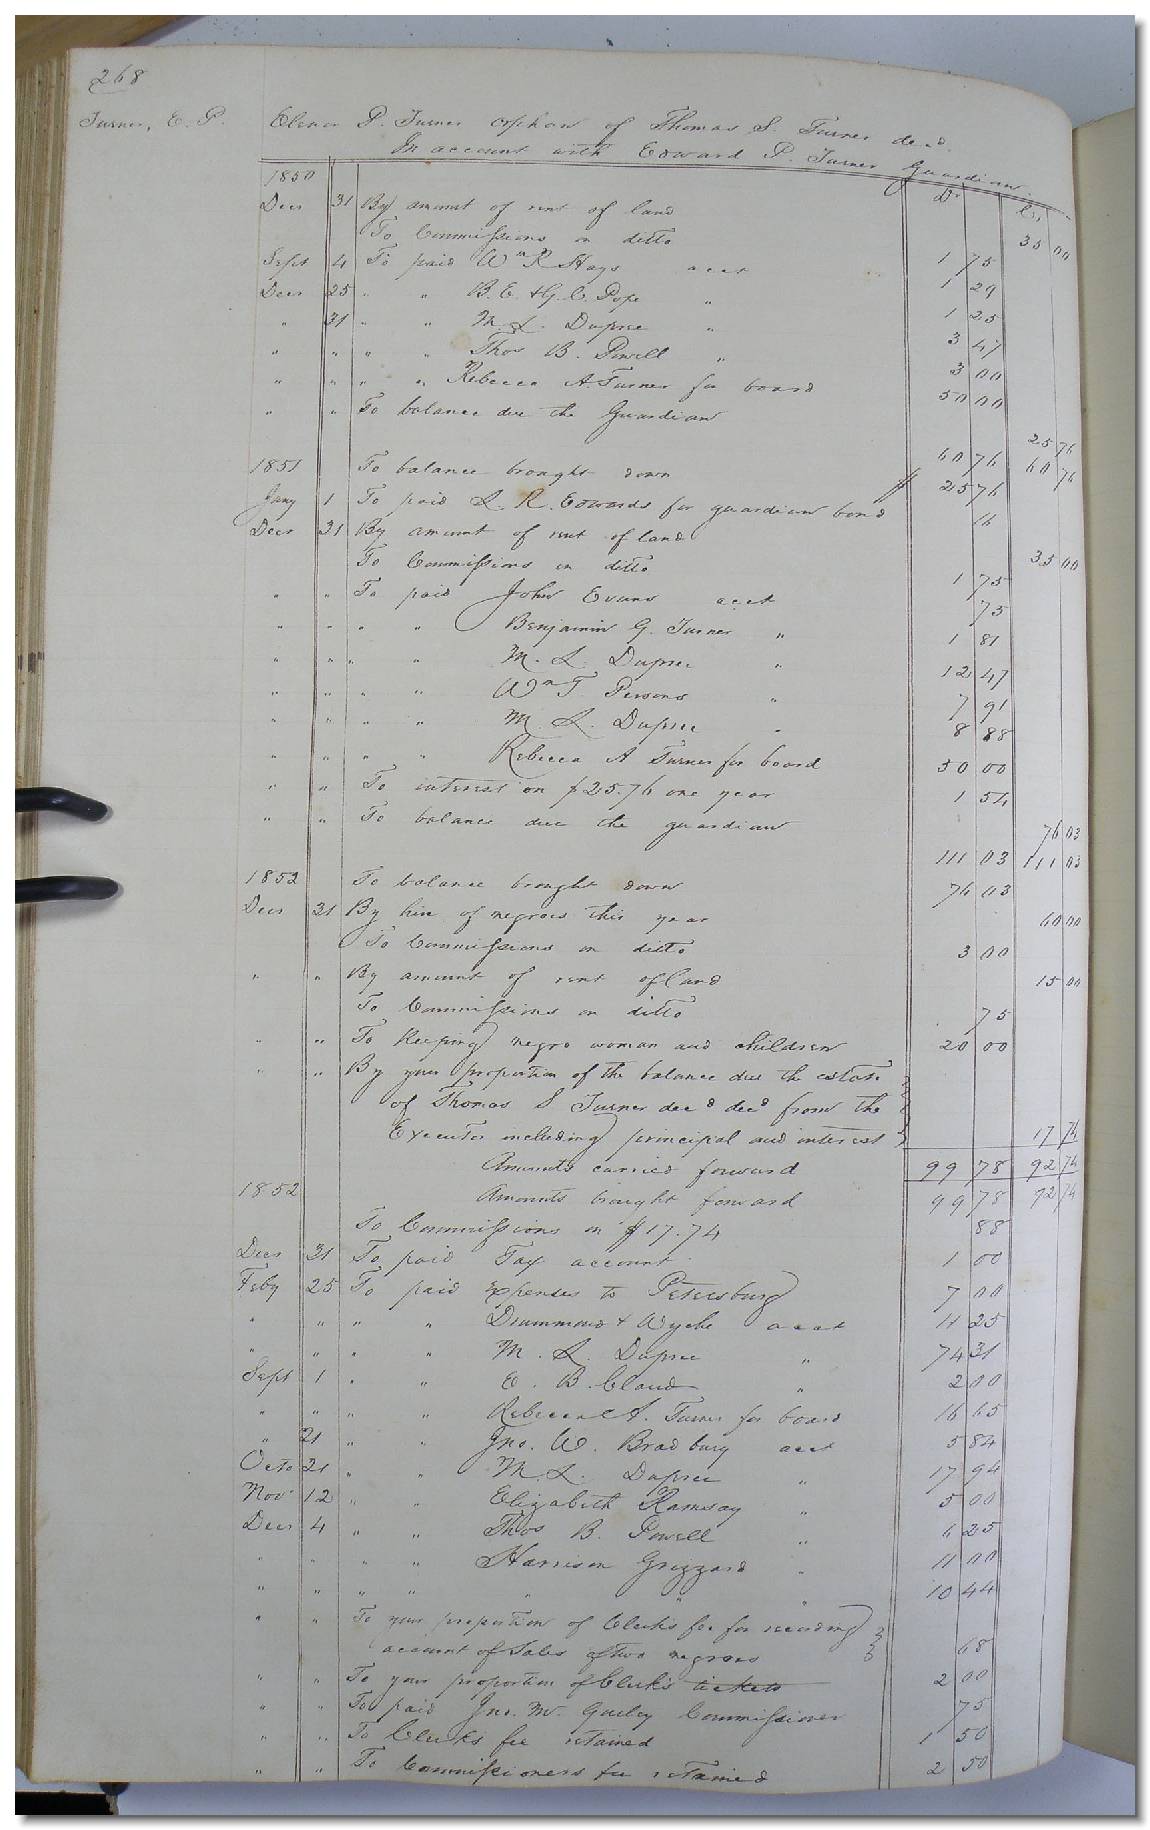 268
Turner, E. P.
Elenor P. Turner orphan of Thomas S. Turner decd.
In account with Edward P. Turner Guardian.
1850 Dr Cr.
Decr 31 By amount of rent of land 35 00
To Commissions on ditto 1 75
Sept 4 To paid Wm R Hays acct 1 29
Decr 25 " " B. E. & G. C. Pope " 1 25
" 31 " " M. L. Dupree " 3 47
" " " " Thos B. Powell " 3 00
" " " " Rebecca A. Turner for board 50 00
" " To balance due the Guardian 25 76
60 76 60 76
1851 To balance brought down $ 25 76
Jany 1 To paid L. R. Edwards for guardian bond 16
Decr 31 By amount of rent of land 35 00
To Commissions on ditto 1 75
" " To paid John Evans acct 75
" " " " Benjamin G. Turner " 1 81
" " " " M. L. Dupree " 12 47
" " " " Wm T Persons " 7 91
" " " " M. L. Dupree " 8 88
" " " " Rebecca A Turner for board 50 00
" " To interest on $25.76 one year 1 54
" " To balance due the guardian 76 03
111 03 111 03
1852 To balance brought down 76 03
Decr 31 By hire of negroes this year 60 00
To Commissions on ditto 3 00
" " By amount of rent of land 15 00
To Commissions on ditto 75
" " To Keeping negro woman and children 20 00
" " By your proportion of the balance due the estate
of Thomas S Turner decd decd from the
Executor including principal and interest 17 74
Amounts carried forward 99 78 92 74
1852 Amounts brought forward 99 78 92 74
To Commissions on $17.74 88
Decr 31 To paid Tax account 1 00
Feby 25 To paid Expenses to Petersburg 7 00
" " " " Drummond & Wyche acct 11 25
" " " " M. L. Dupree " 74 31
Sept 1 " " E. B. Claud " 2 00
" " " " Rebecca A. Turner for board 16 65
" 21 " " Jno. W. Bradbury acct 5 84
Octo 21 " " M. L. Dupree " 17 94
Nov 12 " " Elizabeth Ramsay " 5 00
Decr 4 " " Thos B. Powell " 6 25
" " " " Harrison Grizzard " 11 00
" " " " " " " 10 44
" " To your proportion of Clerks fee for recording
account of Sales of two negroes 68
" " To your proportion of Clerk's tickets 2 00
" " To paid Jno. M. Gurley Commissioner 75
" " To Clerk's fee retained 1 50
" " To Commissioners fee retained 2 50